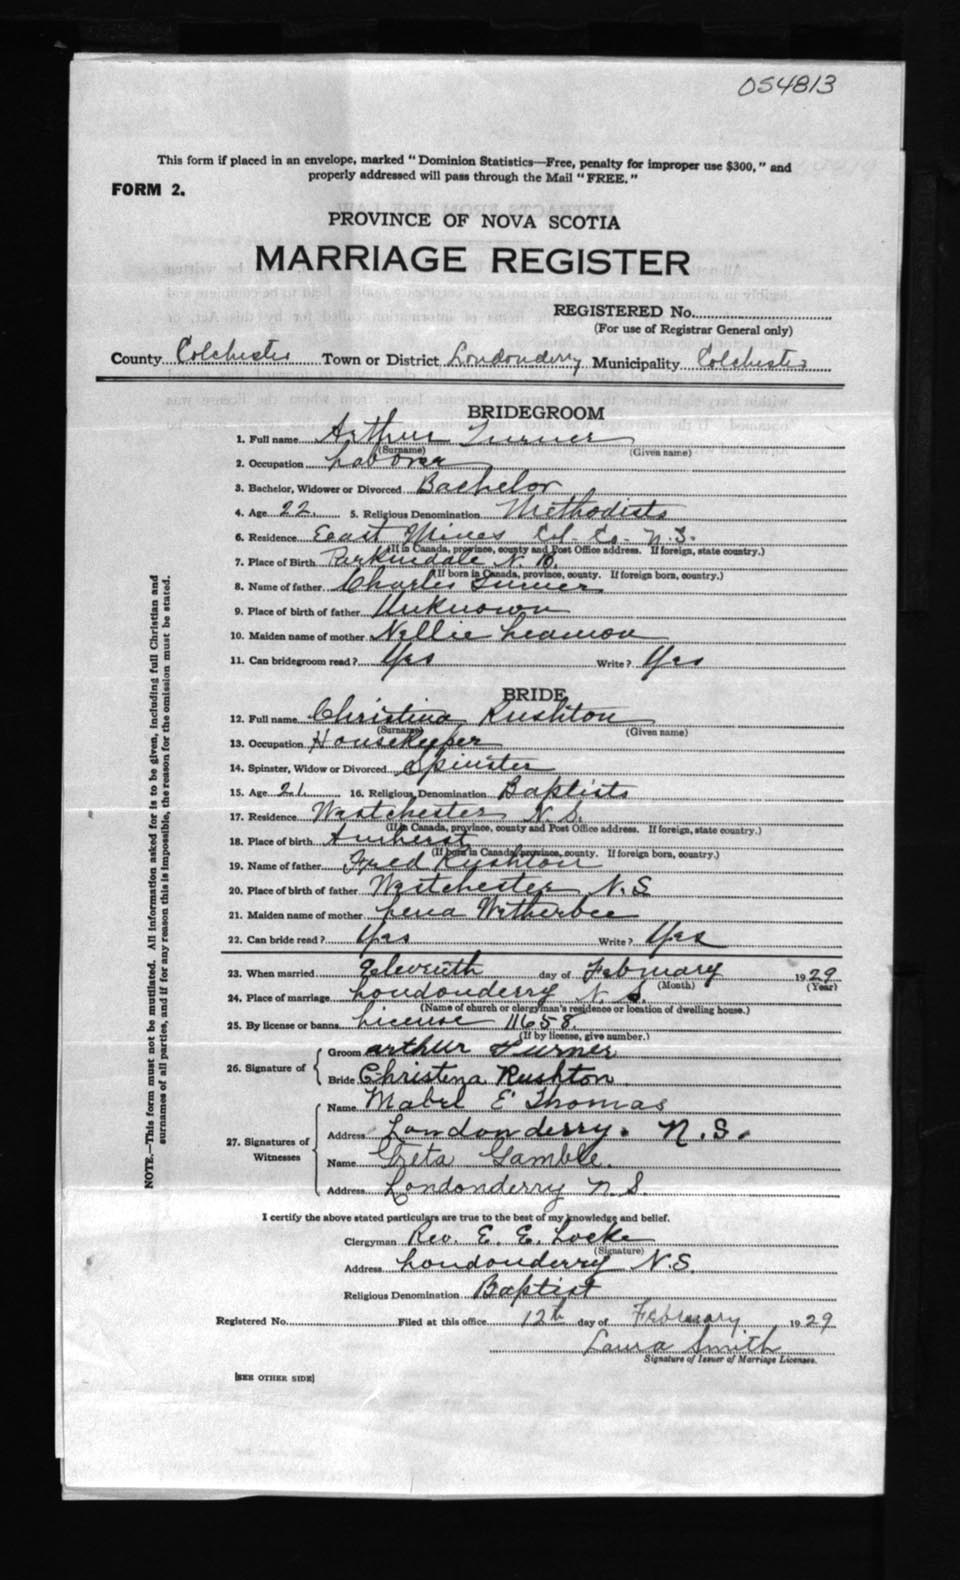 054813
This form if placed in an envelope, marked "Dominion Statistics—Free, penalty for improper use $300," and
properly addressed will pass through the Mail "FREE."
FORM 2.
PROVINCE OF NOVA SCOTIA
MARRIAGE REGISTER
REGISTERED No.
(For use of Registrar General only)
County Colchester Town or District Londonderry Municipality Colchester
BRIDEGROOM
1. Full name Arthur Turner
(Surname) (Given name)
2. Occupation Laborer
3. Bachelor, Widower or Divorced Bachelor
4. Age 22 5. Religious Denomination Methodists
6. Residence East Mines Col. Co. N.S.
(If in Canada, province, county and Post Office address. If foreign, state country.)
7. Place of Birth Parkindale N.B.
(If born in Canada, province, county. If foreign born, country.)
8. Name of father Charles Turner
9. Place of birth of father Unknown
10. Maiden name of mother Nellie Leamon
11. Can bridegroom read? Yes Write? Yes
BRIDE
12. Full name Christina Rushton
(Surname) (Given name)
13. Occupation Housekeeper
14. Spinster, Widow or Divorced Spinster
15. Age 21 16. Religious Denomination Baptists
17. Residence Westchester N.S.
(If in Canada, province, county and Post Office address. If foreign, state country.)
18. Place of birth Amherst
(If born in Canada, province, county. If foreign born, country.)
19. Name of father Fred Rushton
20. Place of birth of father Westchester N.S
21. Maiden name of mother Lena Wetherbee
22. Can bride read? Yes Write? Yes
23. When married Eleventh day of February 1929
(Month) (Year)
24. Place of marriage Londonderry N.S.
(Name of church or clergyman's residence or location of dwelling house.)
25. By license or banns License 11658
(If by license, give number.)
26. Signature of
Groom arthur Turner
Bride Christena Rushton
27. Signatures of Witnesses
Name Mabel E Thomas
Address Londonderry. N.S.
Name Greta Gamble.
Address Londonderry N.S.
I certify the above stated particulars are true to the best of my knowledge and belief.
Clergyman Rev. E. E. Locke
(Signature)
Address Londonderry N.S.
Religious Denomination Baptist
Registered No. Filed at this office 12th day of February 1929
Laura Smith
Signature of Issuer of Marriage Licenses.
[SEE OTHER SIDE]
NOTE.—This form must not be mutilated. All information asked for is to be given, including full Christian and
surnames of all parties, and if for any reason this is impossible, the reason for the omission must be stated.